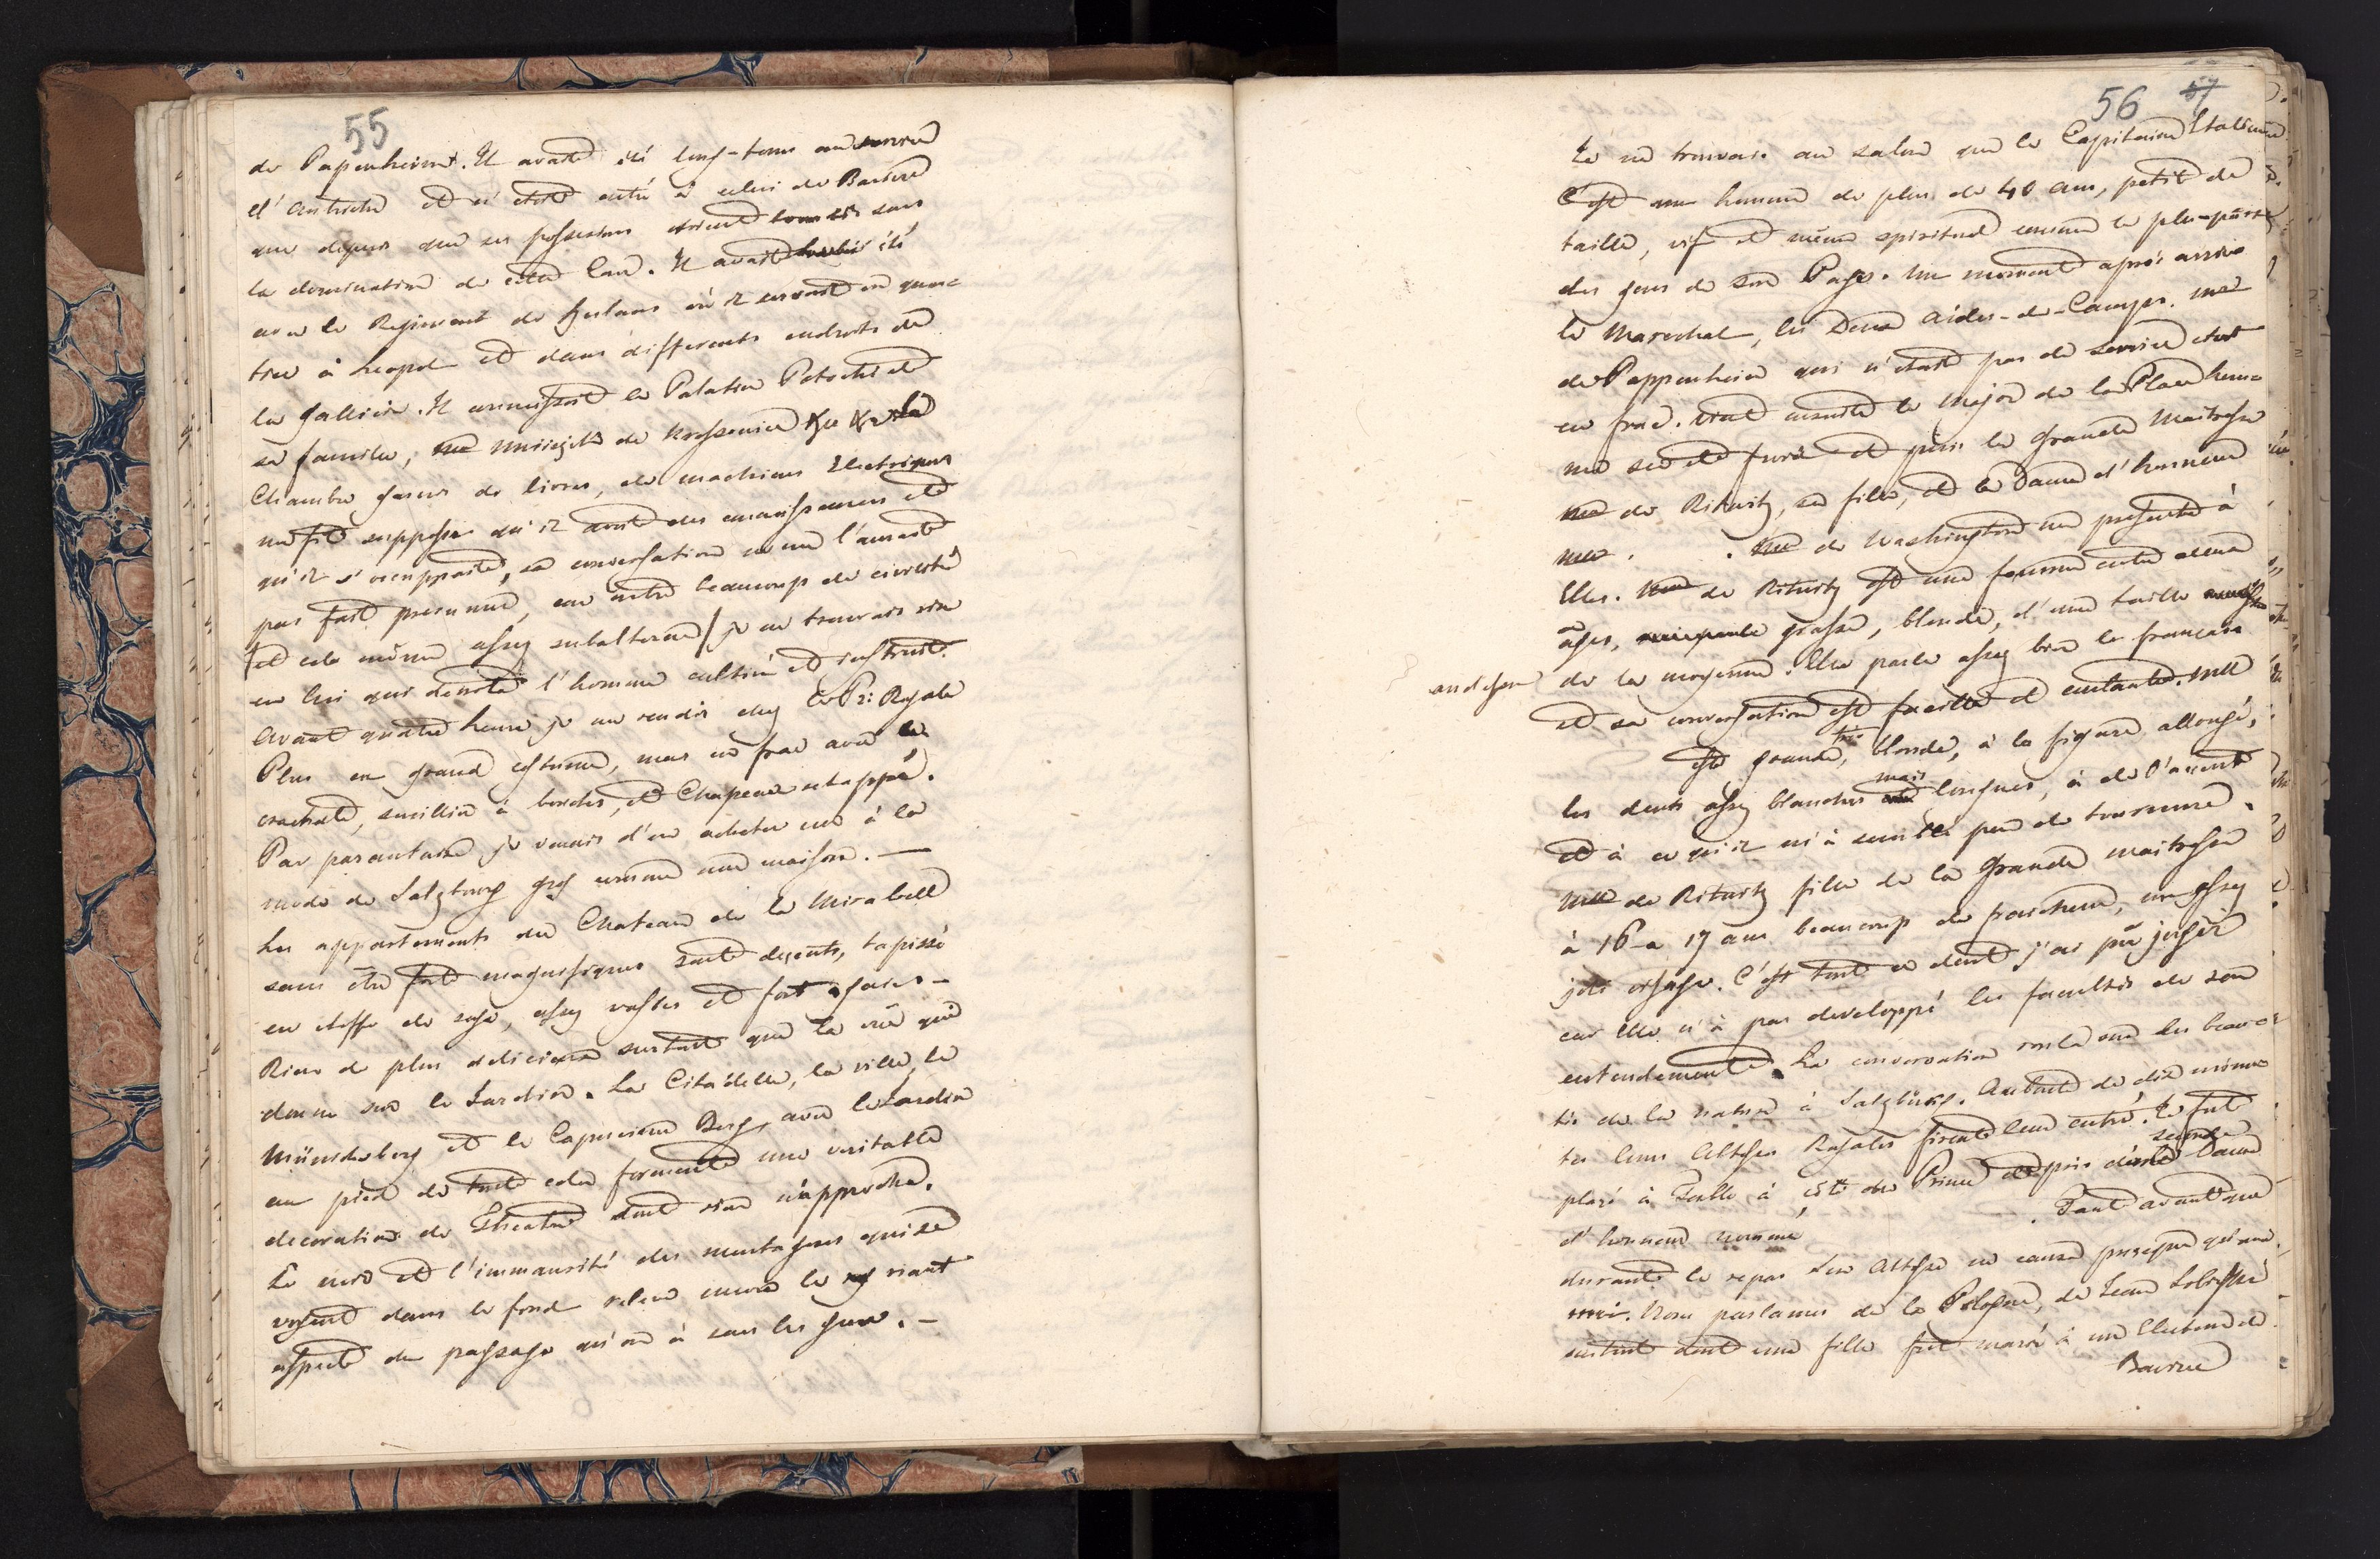 55
de Papenheim. Il avait été long-tems au service
d'Autriche et n'etoit entré à celui de Baviere
que depuis que ses possessions étoient sous
la domination de cette Cour. Il avait été
avec le Regiment de Hulans où il servait en quar-
tier à Leopol et dans differents endroits de
la Gallicie. Il connaissait le Palatin Potocki et
sa famille, de Krassonice la
Chambre garnie de livres, de machines Electriques
me fit supposer qu'il avait des connaissances et
qu'il s'occuppaitt, sa conversation ne me l'aurait
pas fait presumer, car outre beaucoup de civilité
et cela même assez subalterne / je ne trouvais rien
en lui qui denota l'homme cultivé et instruit.
Avant quatre heure je me rendis chez Le Pr: Royale
Plus en grand costume, mais en frac avec le
crachat, à bordes, et Chapeau
Par parantaise je venais d'en acheter un à la
mode de Salzbourg gros comme une maison. —
Les appartements du Chateau de la Mirabell
sans être fort magnifiques sont decents, tapissé
en etoffe de soye, assez vastes et fort
Rien de plus delicieux surtout que la vuë que
donne sur le Jardin. La Citadelle, la ville, le
Münchsberg et le Capuciner Berg, avec le Jardin
au pied de tout cela forment une veritable
decoration de Theatre dont rien n'approche.
Le et l'immansité des montagnes qui se
voyent dans le fond releve encore le riant
aspect du paysage qu'on à sous les yeux. —
56 57
Je ne trouvais au salon que le Capitaine Italienne
C'est un homme de plus de 40 ans, petit de
taille, vif et même spirituel comme la plus-part
des gens de son Pays. Un moment après arriva
le Marechal, les Deux Aides-de-Camps. Mr
de Pappenheim qui n'etait pas de service etait
en frac. Vint ensuite le Major de la Place hom-
me sec et et puis la Grande Maitresse
Me de Ritusitz, sa fille, et la Dame d'honneur
Mlle . . Me de Washington me presenta à
Elles. Me de Ritusitz est une femme entre deux
ages, grasse, blonde, d'une taille
au dessus de la moyenne. Elle parle assez bien le français
et sa conversation est facille et Mlle
est grande, très blonde, à la figure allongé,
les dents assez blanches mais longues, à de l'accent
et à ce qu'il m'à semblé peu de tournure.
Mlle de Ritusitz fille de la Grande maitresse
à 16 a 17 ans beaucoup de fraicheur, un assez
joli visage. C'est tout ce dont j'ai pû juger
car Elle n'à pas developpé les facultés de son
entendement. La conversation roula sur les beau-
tés de la nature à Salzbourg. Au bout de dix minu-
tes leurs Altesses Royales firent leur entré. Je fut
placé à Table à côté du Prince et près d'une seconde Dame
d'honneur nommé . Tant avant que
durant le repas Son Altesse ne causa presque qu'avec
moi. Nous parlames de la Pologne, de Jean Sobieski
surtout dont une fille fut marié à un Electeur de
Baviere